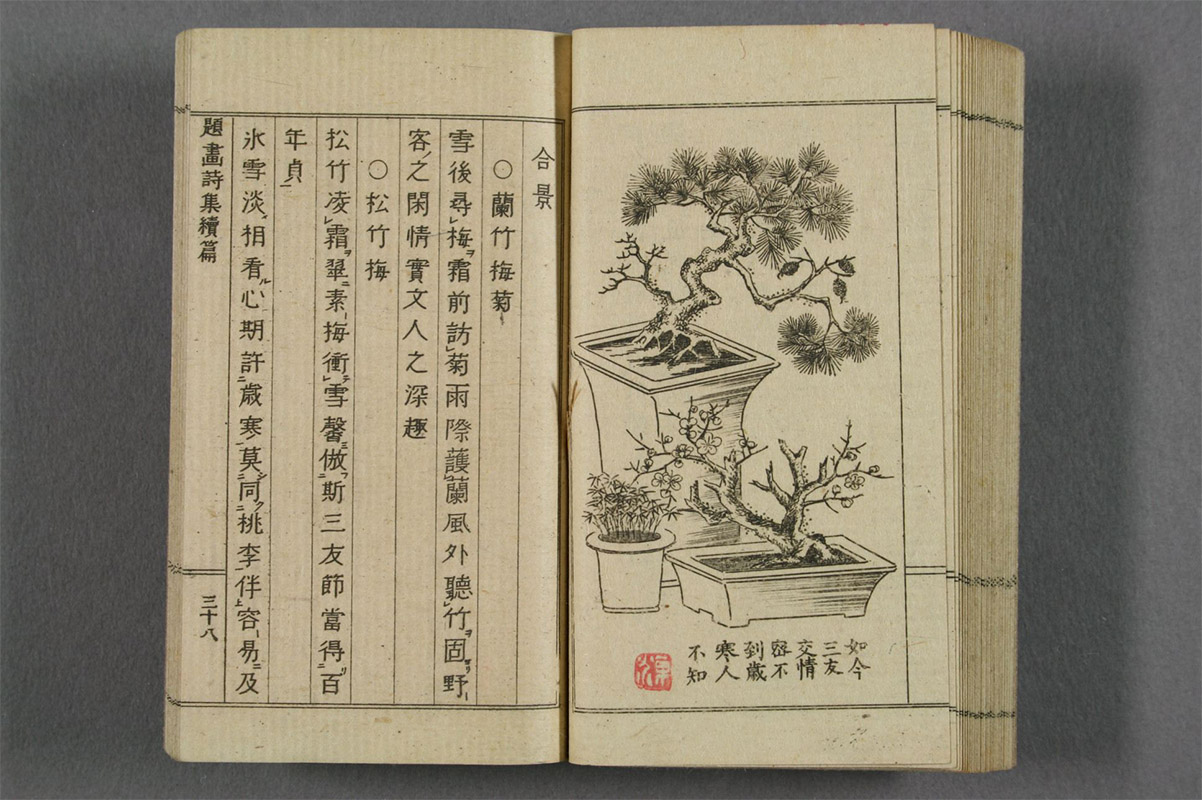 如今
三友
交情
密不
到歳
寒人
不知
合景
○蘭竹梅菊
雪後尋梅霜前訪菊雨際護蘭風外聽竹固野
客之閑情實文人之深趣
○松竹梅
松竹凌霜翠素梅衝雪馨倣斯三友節當得百
年貞
氷雪淡相看心期許歳寒莫同桃李伴容易及
題畫詩集續篇
三十八